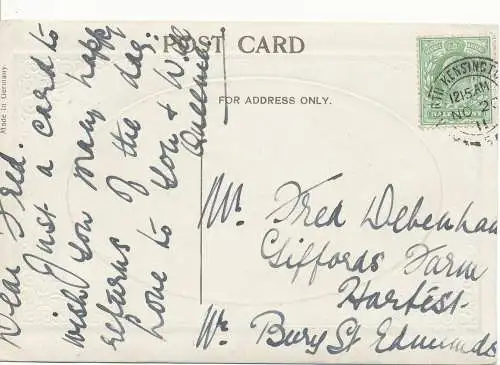 POST CARD
Made in Germany.
FOR ADDRESS ONLY.
Dear Fred.
Just a card to
wish you many happy
returns of the day.
Love to you & Will
Mr. Fred Debenham
Giffords Farm
Hartest
Nr. Bury St Edmunds
KENSINGT
12.15 AM
NO 2
11